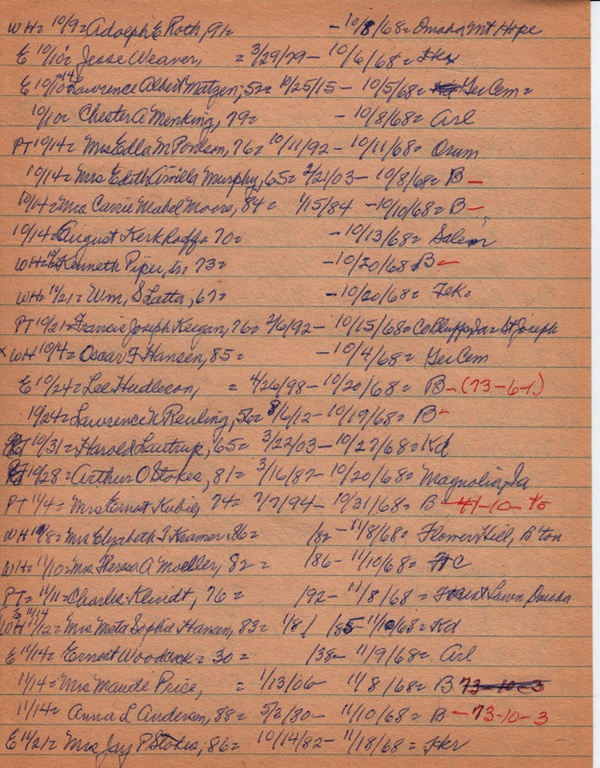 WH= 10/9= Adolph E Roth, 91= -10/8/68= Omaha Mt Hope
E 10/10= Jesse Weaver, = 3/29/79- 10/6/68=
E 10/10= 10/14 Lawrence Albert Matzen, 52= 10/25/15- 10/5/68= Ger Cem=
10/10= Chester A Menking, 79= -10/8/68= Arl
PT 10/14= Mrs Edla M Poulson, 76= 10/11/92- 10/11/68= Orum
10/14= Mrs Edith Amilla Murphy, 65= 2/21/03- 10/8/68= B-
10/14= Mrs Carrie Mabel Moore, 84= 1/15/84 -10/10/68= B-
10/14= August Kerkhoff= 70= -10/13/68= Salem
WH= Kenneth Piper, Sr= 73= -10/20/68 B-
WH= 10/21= Wm, S Latta, 67= -10/20/68= Tek=
PT 10/21= Francis Joseph Keegan, 76= 2/6/92- 10/15/68= Co Bluffs Ia= St Joseph
x WH 10/4= Oscar F Hansen, 85= -10/4/68= Ger Cem
E 10/24= Lee Hudleson, = 4/26/98- 10/20/68= B-(73-6-1.)
10/24= Lawrence N Reuling, 56= 8/6/12- 10/19/68= B-
10/31= Harold Lautrup, 65= 3/22/03- 10/27/68= Kd
10/28= Arthur O Stokes, 81= 3/16/87- 10/20/68= Magnolia, Ia
PT 11/4= Mrs Ernest Kubie 74= 7/7/94- 10/31/68= B -41-10-
WH 11/8= Mrs Elizabeth T Kramer, 86= /82- 11/8/68= Flower Hill, B'ton
WH= 11/10= Mrs Theresa A Moeller, 82= /86- 11/10/68= HC
PT= 11/11= Charlie Klindt, 76= /92- 11/8/68= Forest Lawn, Omaha
WH 11/12= E 11/14 Mrs Meta Sophie Hansen, 83= 1/8/ /85- 11/10/68= Kd
E 11/14= Ernest Woodock= 30= /38- 11/9/68= Arl
11/14= Mrs Maude Price, = 1/13/06- 11/8/68= B 73-10-3
11/14= Anna L Andersen, 88= 5/2/80- 11/10/68= B -73-10-3
E 11/21= Mrs Jay P Stokes, 86= 10/14/82- 11/18/68= Her